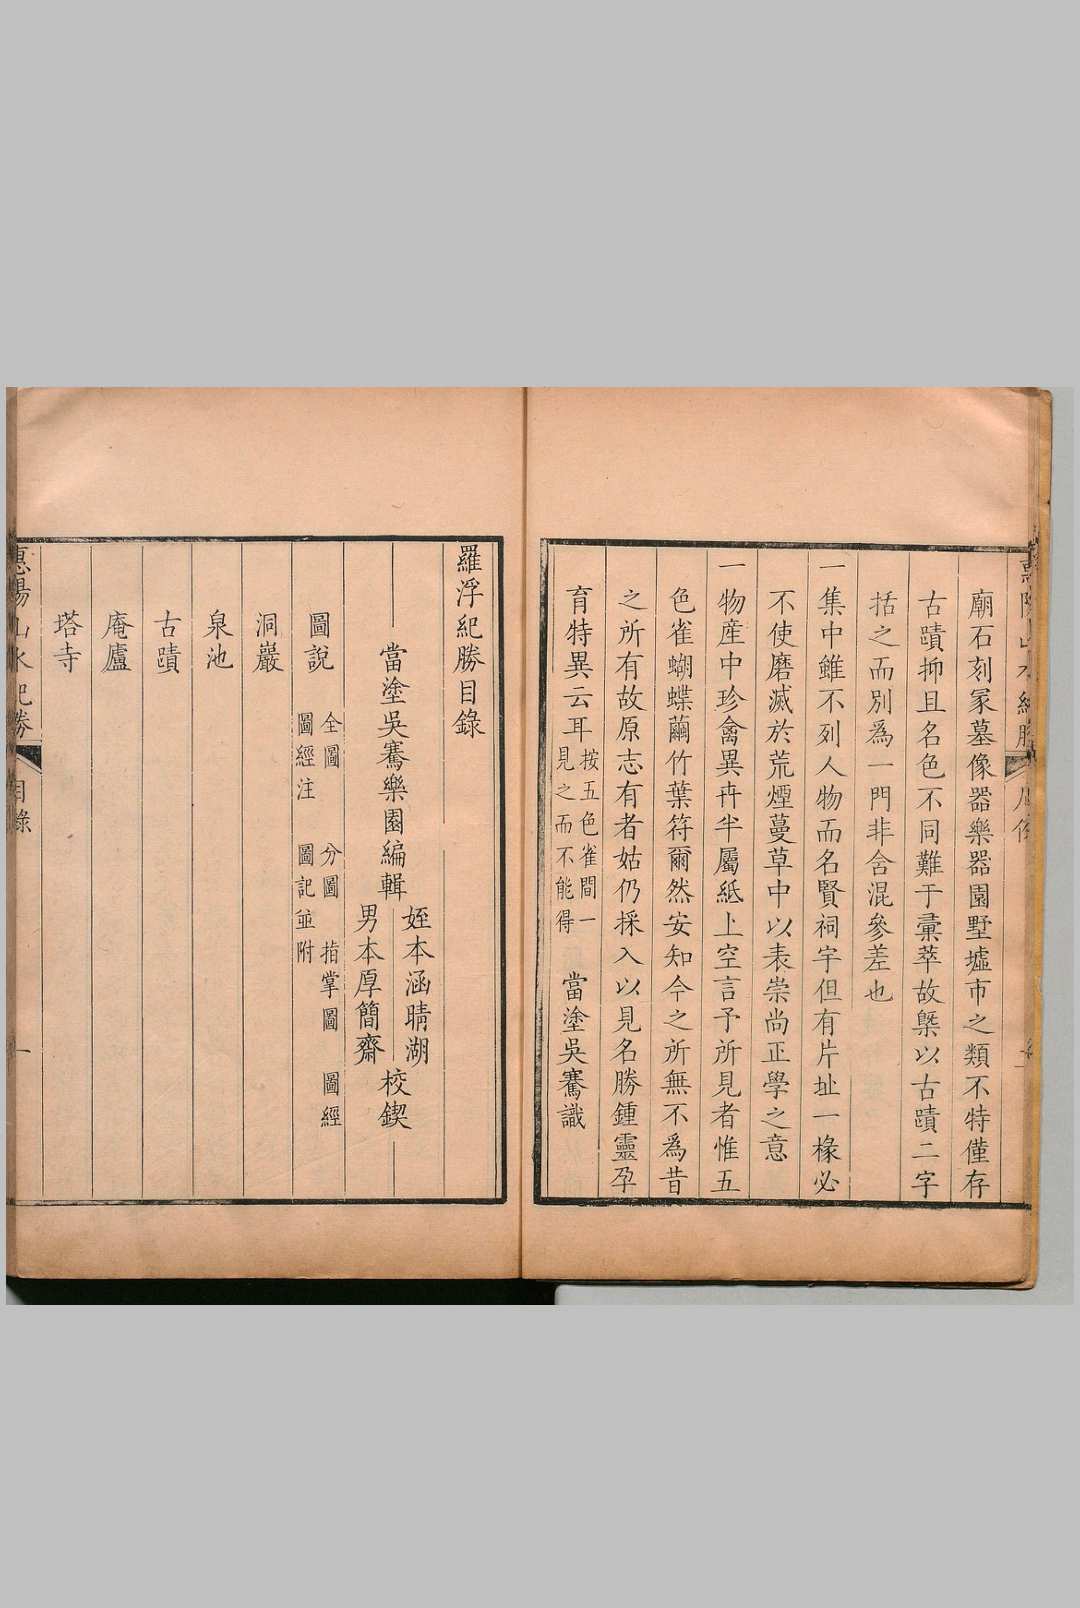 廟石刻冢墓像器樂器園墅墟市之類不特僅存
古蹟抑且名色不同難于彚萃故槩以古蹟二字
括之而別爲一門非舍混參差也
一集中雖不列人物而名賢祠宇但有片址一椽必
不使磨滅於荒煙蔓草中以表崇尚正學之意
一物産中珍禽異卉半屬紙上空言予所見者惟五
色雀蝴蝶繭竹葉符爾然安知今之所無不爲昔
之所有故原志有者姑仍採入以見名勝鍾靈孕
育特異云耳按五色雀間一
見之而不能得
當塗吳騫識
羅浮紀勝目錄
當塗吳騫樂園編輯
姪本涵晴湖
男本厚簡齋
校鍥
圖說
全圖 分圖 指掌圖 圖經
圖經注 圖記並附
洞巖
泉池
古蹟
庵廬
塔寺
惠陽山水紀勝 目錄 一